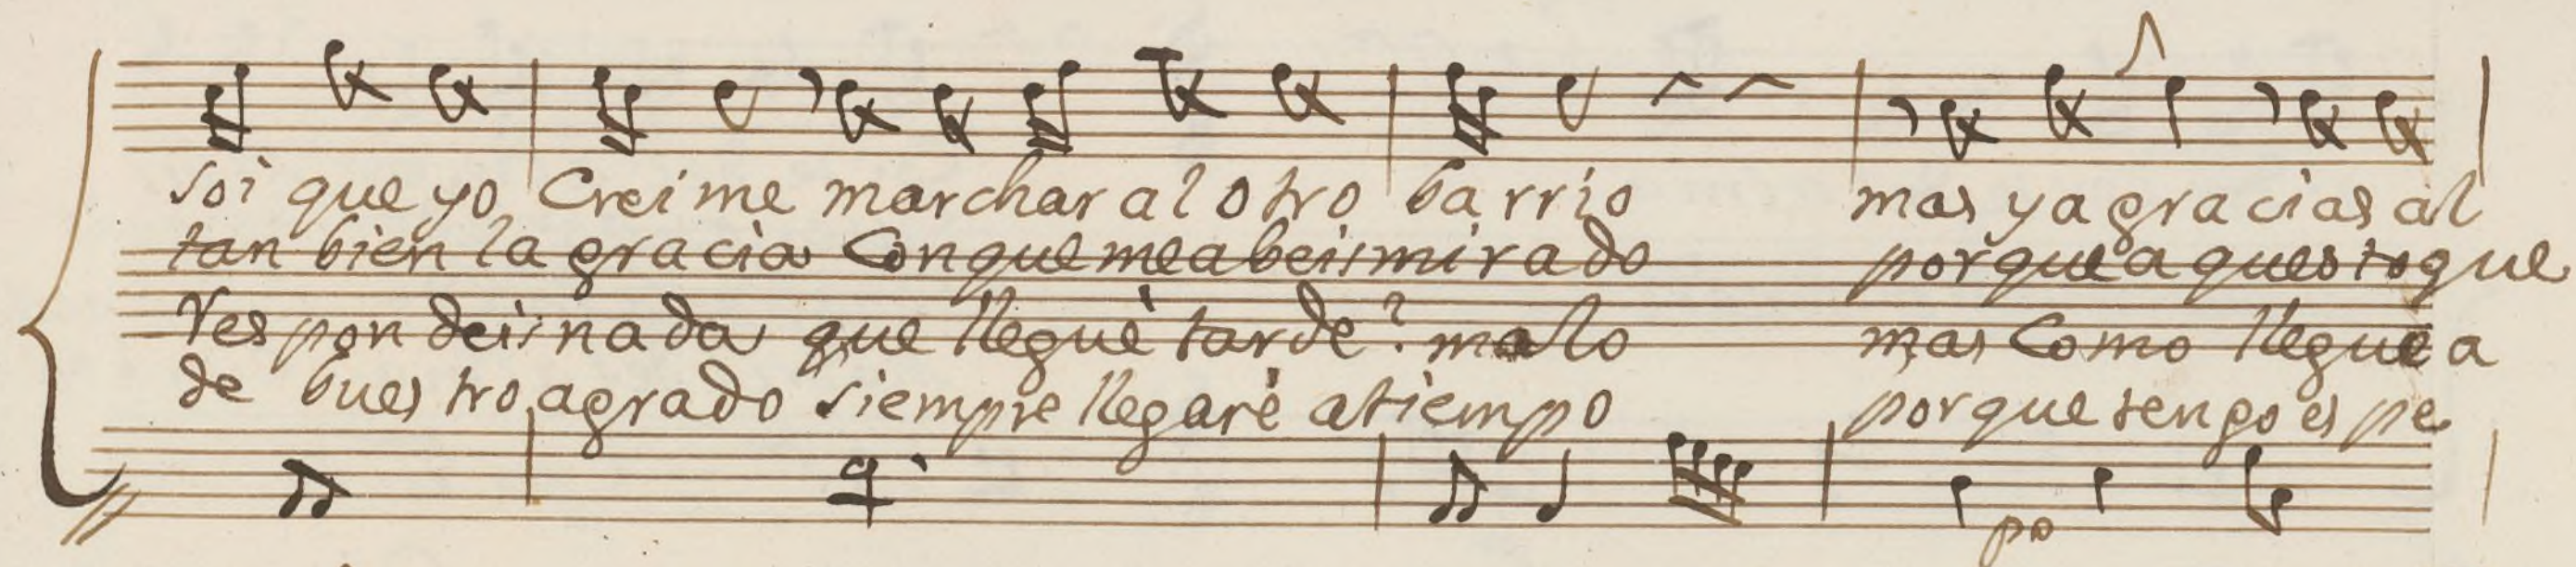 soi que yo Crei me marchar al otro barrio mas ya gracias al
tan bien la gracia Con que me abeis mirado porque aquesto que
Respondeis nada que lleguè tarde? malo mas Como llegue a
de buestro agrado siempre llegarè a tiempo porque tengo espe
po